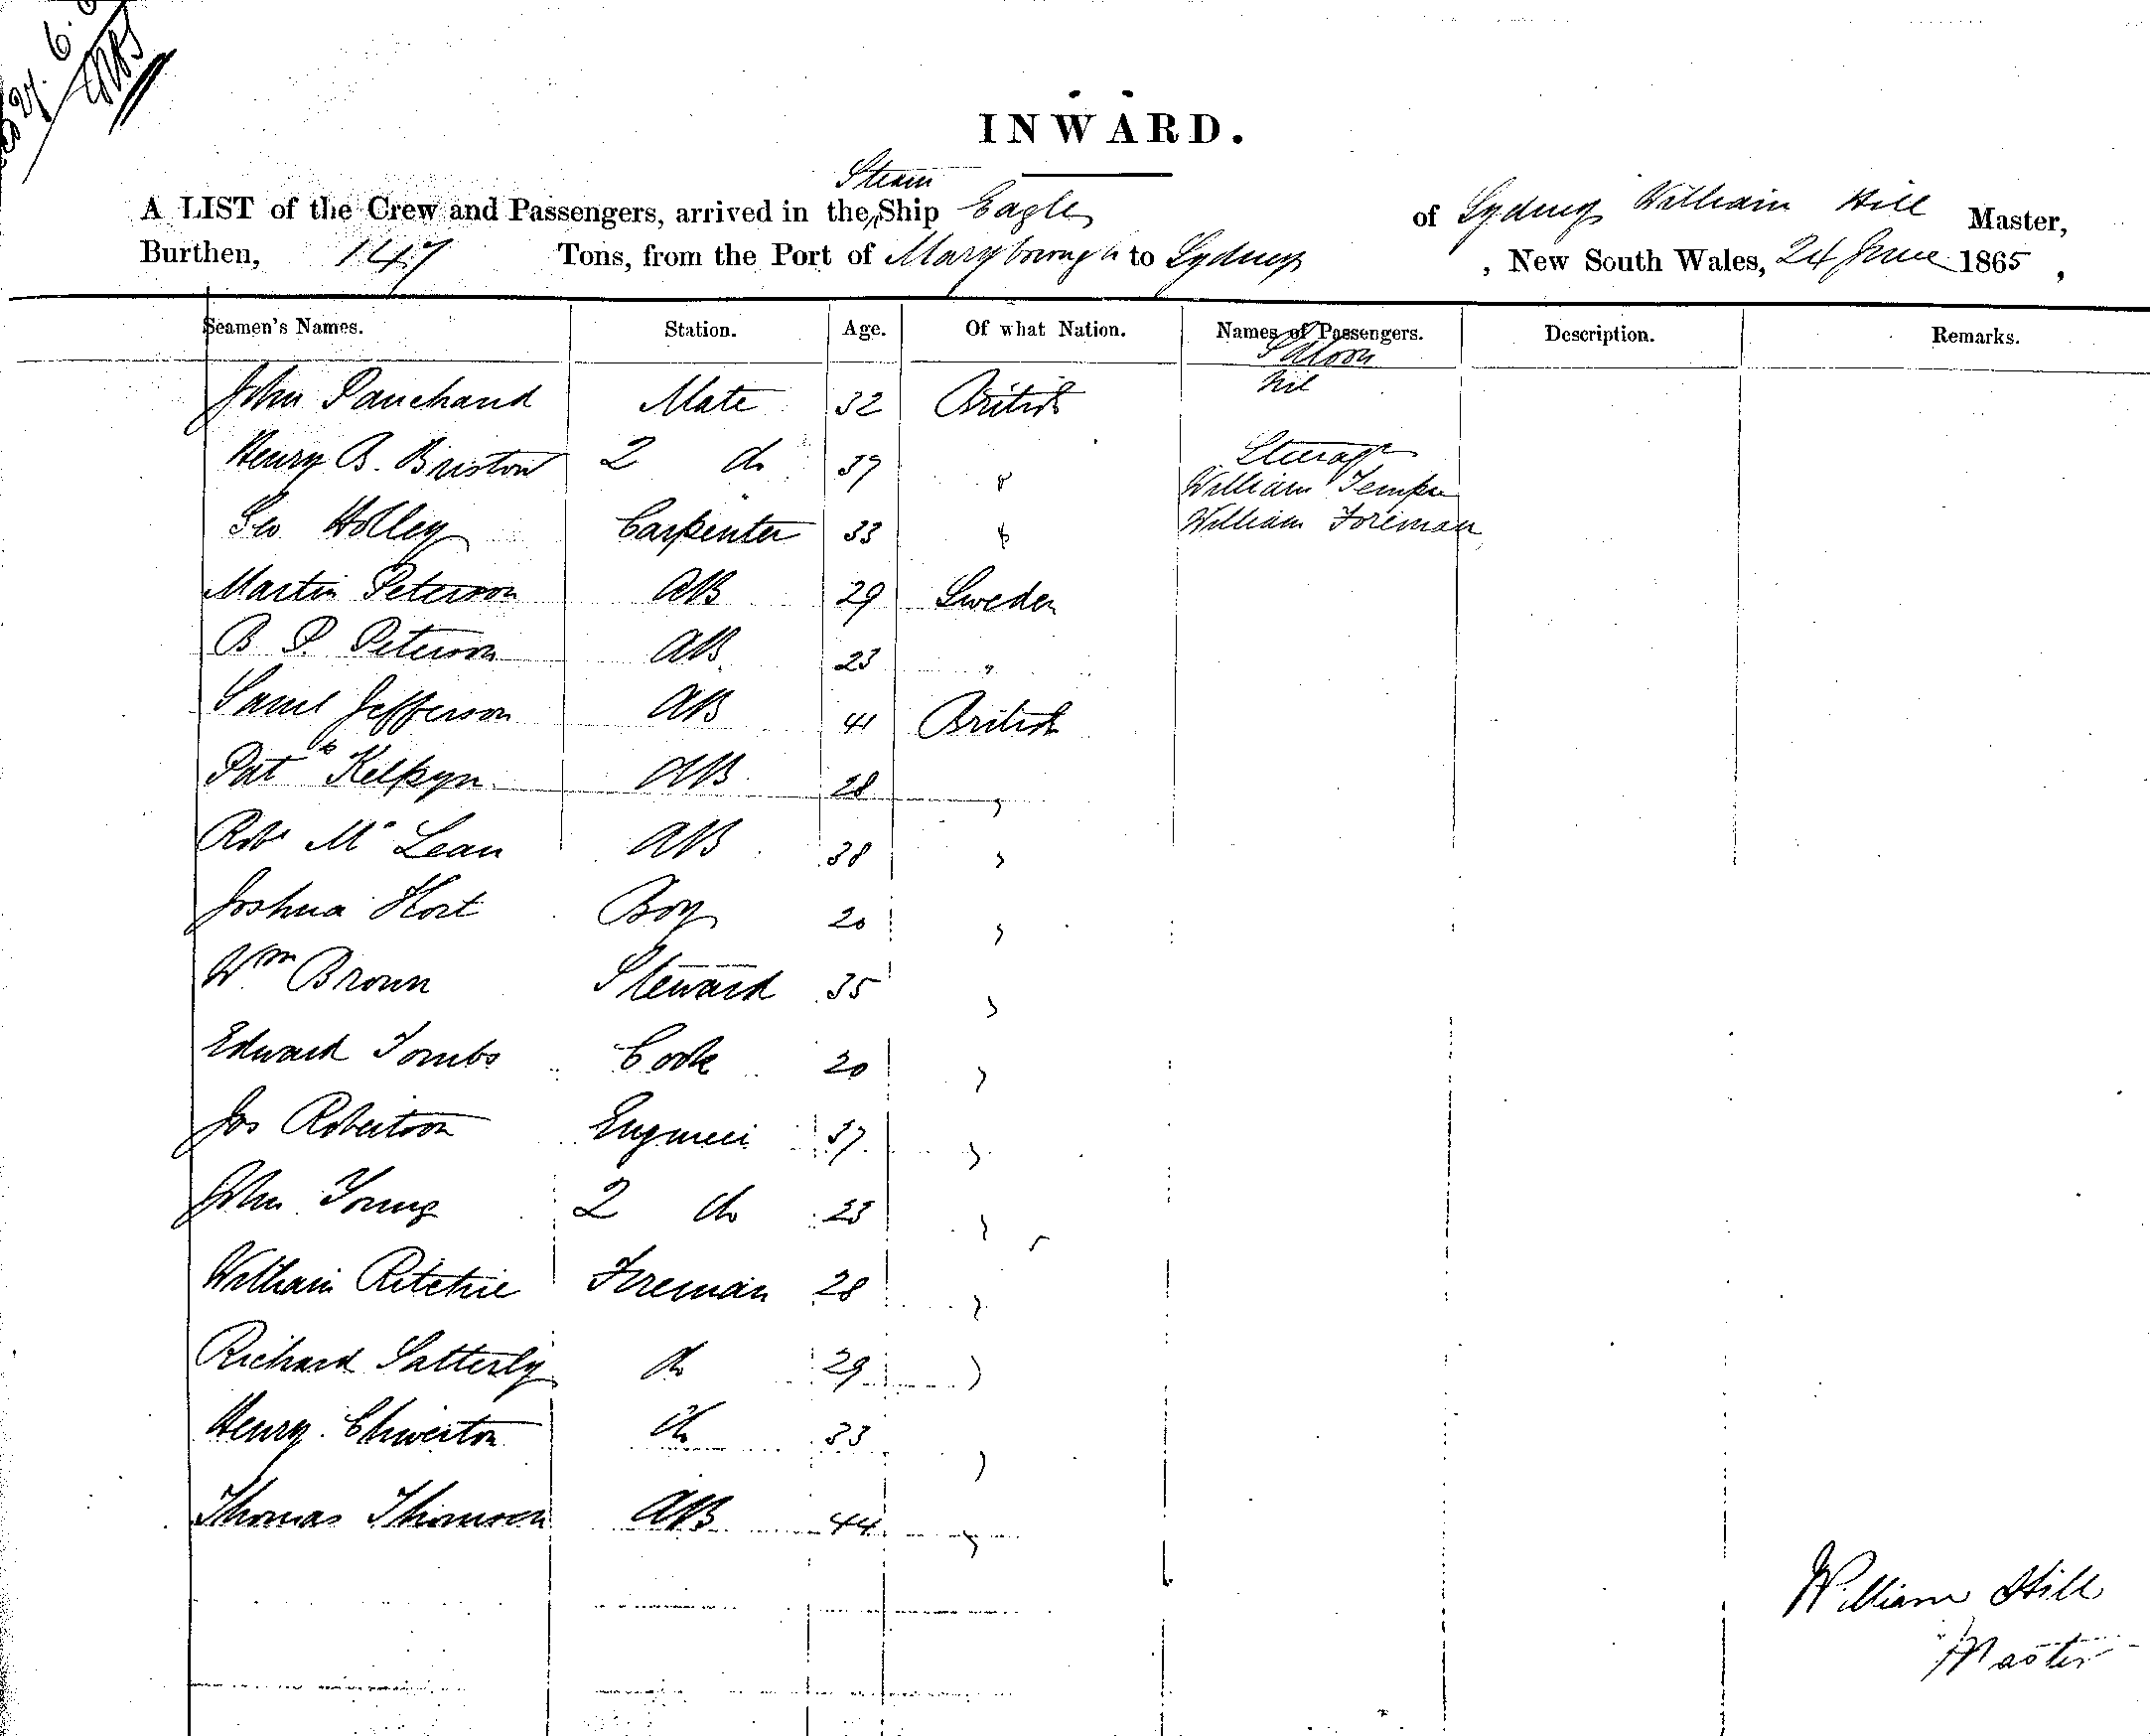 27. 6.
INWARD.
Steam
A LIST of the Crew and Passengers, arrived in the Ship Eagle of Sydney William Hill Master,
Burthen, 147 Tons, from the Port of Maryborough to Sydney, New South Wales, 24 June 1865,
Seamen's Names. Station. Age. Of what Nation. Names of Passengers. Description. Remarks.
Saloon
John Panchand Mate 32 British Nil
Henry B. Bristow 2 do 37 " Steerage
William
Geo Holley Carpenter 33 " William Foreman
Martin Peterson AB 29 Sweden
B P. Peterson AB 23 "
Saml Jefferson AB 41 British
Patk AB 28 "
Robt Mc Lean AB 38 "
Joshua Hort Boy 20 "
Wm Brown Steward 35 "
Edward Tombs Cook 20 "
Jos Robertson Engineer 37 "
John Young 2 do 23 "
William Ritchie Foreman 28 "
Richard Satterly do 29 "
Henry do 33 "
Thomas Thomson AB 44 "
William Hill
Master